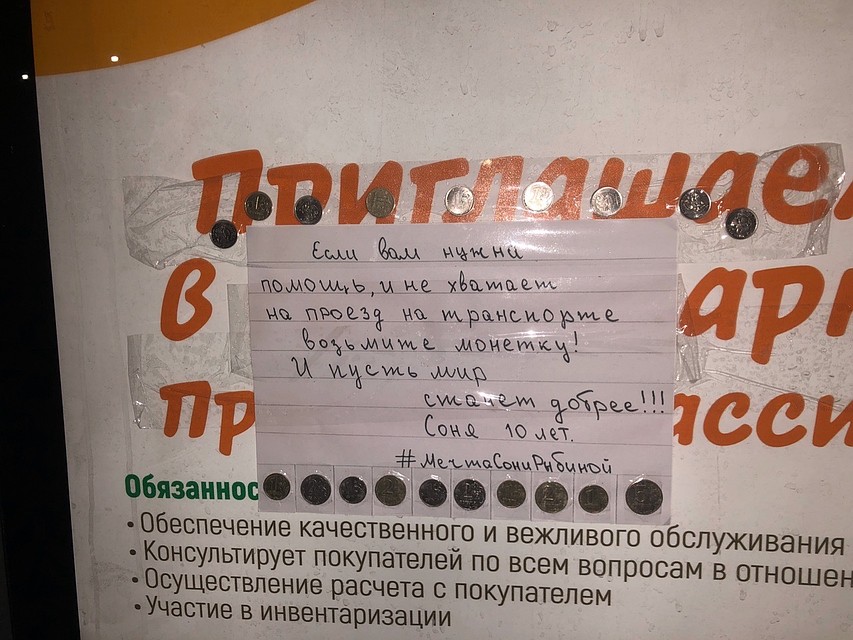 Приглашаем
в
Если вам нужна
помощь, и не хватает
на проезд на транспорте
возьмите монетку!
И пусть мир
станет добрее!!!
Соня 10 лет.
#МечтаСониРыбиной
Обязаннос
• Обеспечение качественного и вежливого обслуживания
• Консультирует покупателей по всем вопросам в отношен
• Осуществление расчета с покупателем
• Участие в инвентаризации